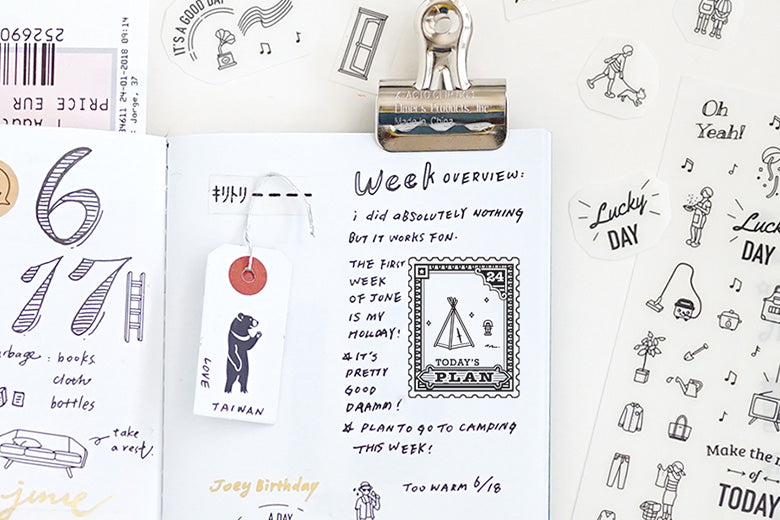 IT'S A GOOD DAY
252690
PRICE EUR
34611 24-01-2018 09:14
Jorge, 37
6
17
books
cloth
bottles
take
a rest.
june
Elmer's Products, Inc
Made in China
キリトリ
LOVE
TAIWAN
Week OVERVIEW:
i did ABSOLUTELY NOTHING
BUT IT WORKS FON.
THE FIRST
WEEK
OF JUNE
IS MY
HOLIDAY!
IT'S
PRETTY
GOOD
DRAMM!
PLAN TO GO TO CAMPING
THIS WEEK!
24
TODAY'S
PLAN
Joey Birthday
A DAY
TOO WARM 6/18
Oh
Yeah!
Lucky
DAY
DAY
Make the
of
TODAY